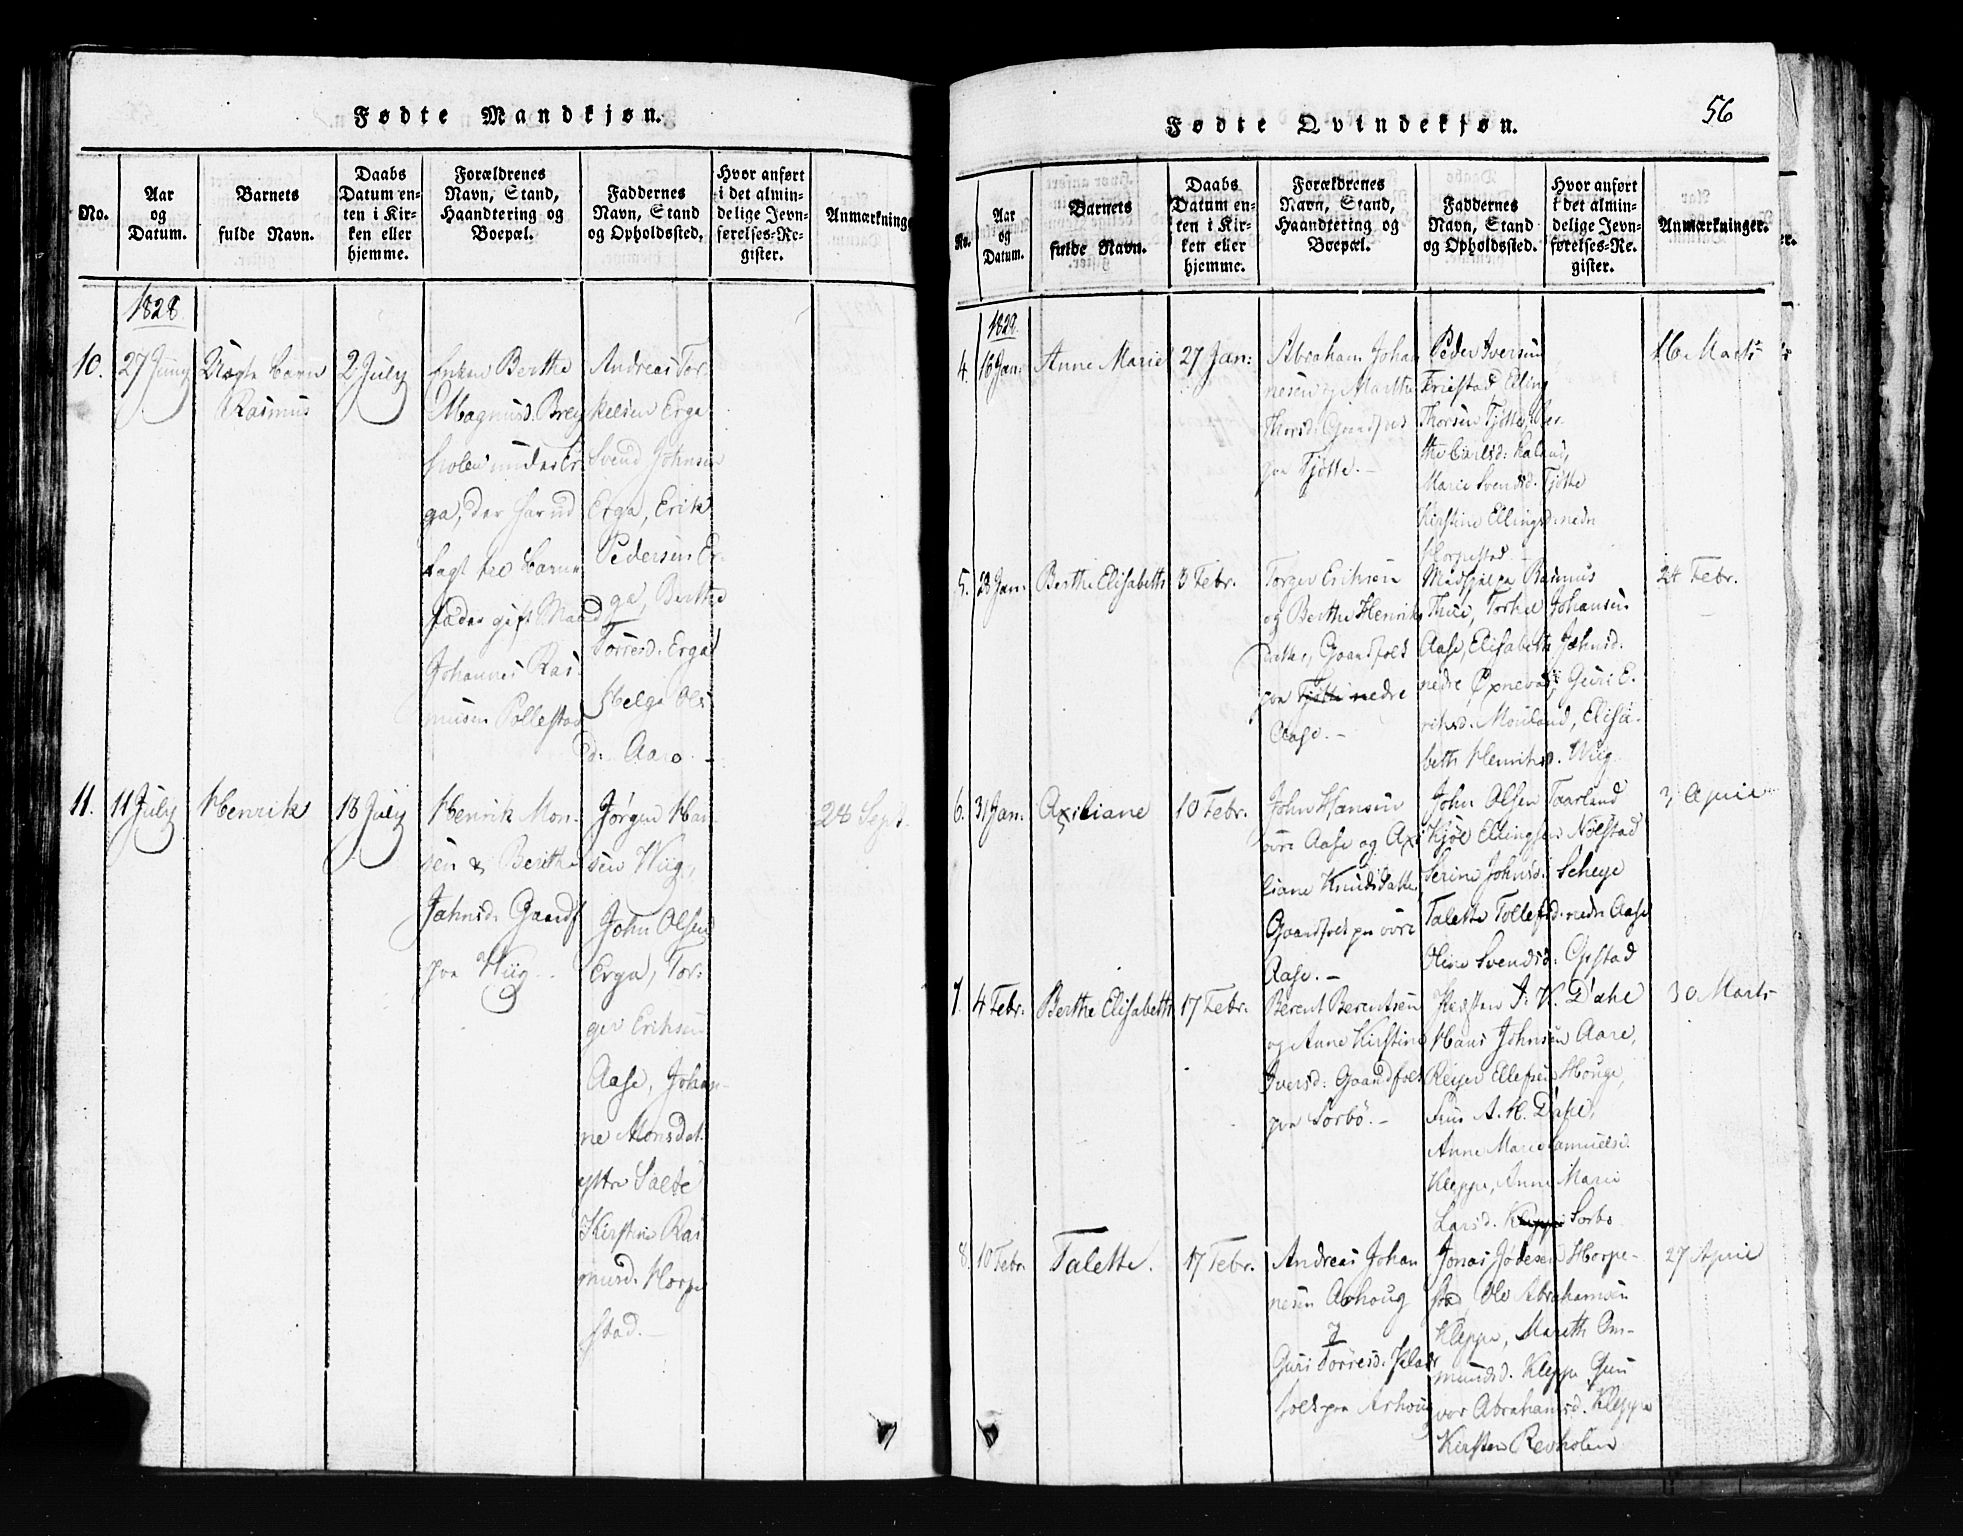 Fødte Mandkjøn.
No.
Aar
og
Datum.
Barnets
fulde Navn.
Daabs
Datum en-
ten i Kir-
ken eller
hjemme.
Forældrenes
Navn, Stand,
Haandtering og
Boepæl.
Faddernes
Navn, Stand
og Opholdssted.
Hvor anført
i det almin-
delige Jevn-
førelses-Re-
gister.
Anmærkninge
1828
10.
27 Juny
Uægte Barn
Rasmus
2 July
Enken Berthe
Magnusd. Brey
holen under Er
ga, der har ud
lagt til Barne
fader gift Mand
Johannes Ras
musen Pollestad
Andreas Tor
kelsen Erga
Svend Johnsen
Erga, Erik
Pedersen Er-
ga, Berthe
Torresd. Erga
Helge Ols
d. Aare.
11.
11 July
Henrik
13 July
Henrik Mon-
sen & Berithe
Jahnsd. Gaardf
paa Wiig
Jørgen Han
sen Wiig,
John Olsen
Erga, Tor-
ger Eriksen
Aase, Johan-
ne Monsdat.
yttre Salte
Kirstine Ras
musd. Horpe
stad.
28 Sept.
Fødte Qvindekjøn.
56
No.
Aar
og
Datum.
Barnets
fulde Navn.
Daabs
Datum en-
ten i Kir-
ken eller
hjemme.
Forældrenes
Navn, Stand,
Haandtering og
Boepæl.
Faddernes
Navn, Stand
og Opholdssted.
Hvor anført
i det almin-
delige Jevn-
førelses-Re-
gister.
Anmærkninger.
1829
4.
16 Jan:
Anne Marie
27 Jan:
Abraham Johan
nesen og Marthe
Thorsd: Gaardfols
paa Tjøtte.
Peder Iversen
Friestad Elling
Thorsen Tjøtte, Ber-
the Carlsd: Kaland,
Marie Svendsd. Tjøtte
Kirstine Ellingsd: nedre
Horpestad
16 Marts
5.
28 Jan:
Berthe Elisabeth
3 Febr.
Torger Eriksen
og Berthe Henriks
Datter, Gaardfols
paa Tjøtte nedre
Aase.
Rasmus
Thue, Torkel Johansen
Aase, Elisabeth Johnsd.
nedre Øxnevad, Guri E-
riksd. Mouland, Elisa-
beth Henriksd. Wiig
24 Febr.
6.
31 Jan:
Axiliane
10 Febr.
John Hansen
øvre Aase og Axi
liane Knudsdatter
Gaardfols paa øvre
Aase.
John Olsen Taarland
Kjøl Ellingsen Nølstad
Serine Johnsd: Scheye
Talette Tollefsd: nedre Aase
Oline Svendsd: Opstad
3 April
7.
4 Febr.
Berthe Elisabeth
17 Febr.
Berent Berentsen
og Anne Kirstine
Iversd: Gaardfols
paa Sørbø.
Præsten J: K. Dahl
Hans Johnsen Aare,
Reyer Ellefsen Houge,
Frue A. H. Dahl,
Anne Marie Samuelsd.
Kleppe, Anne Marie
Larsd. Kleppe Sørbø
30 Marts
8.
10 Febr
Talette.
17 Febr.
Andreas Johan
nesen Aahoug
og
Guri Torresd. Plads
fols paa Arhoug
Jonas Jødesen Horpe-
stad, Ole Abrahamsen
Kleppe, Mareth Om-
mundsd. Kleppe Gun
vor Abrahamsd. Kleppe
Kirsten Revholen
27 April